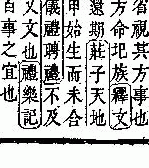 省視其方事也
方命圯族釋文
還期莊子天地
甲始生而未合
儀禮聘禮不及
又文也禮樂記
百事之宜也